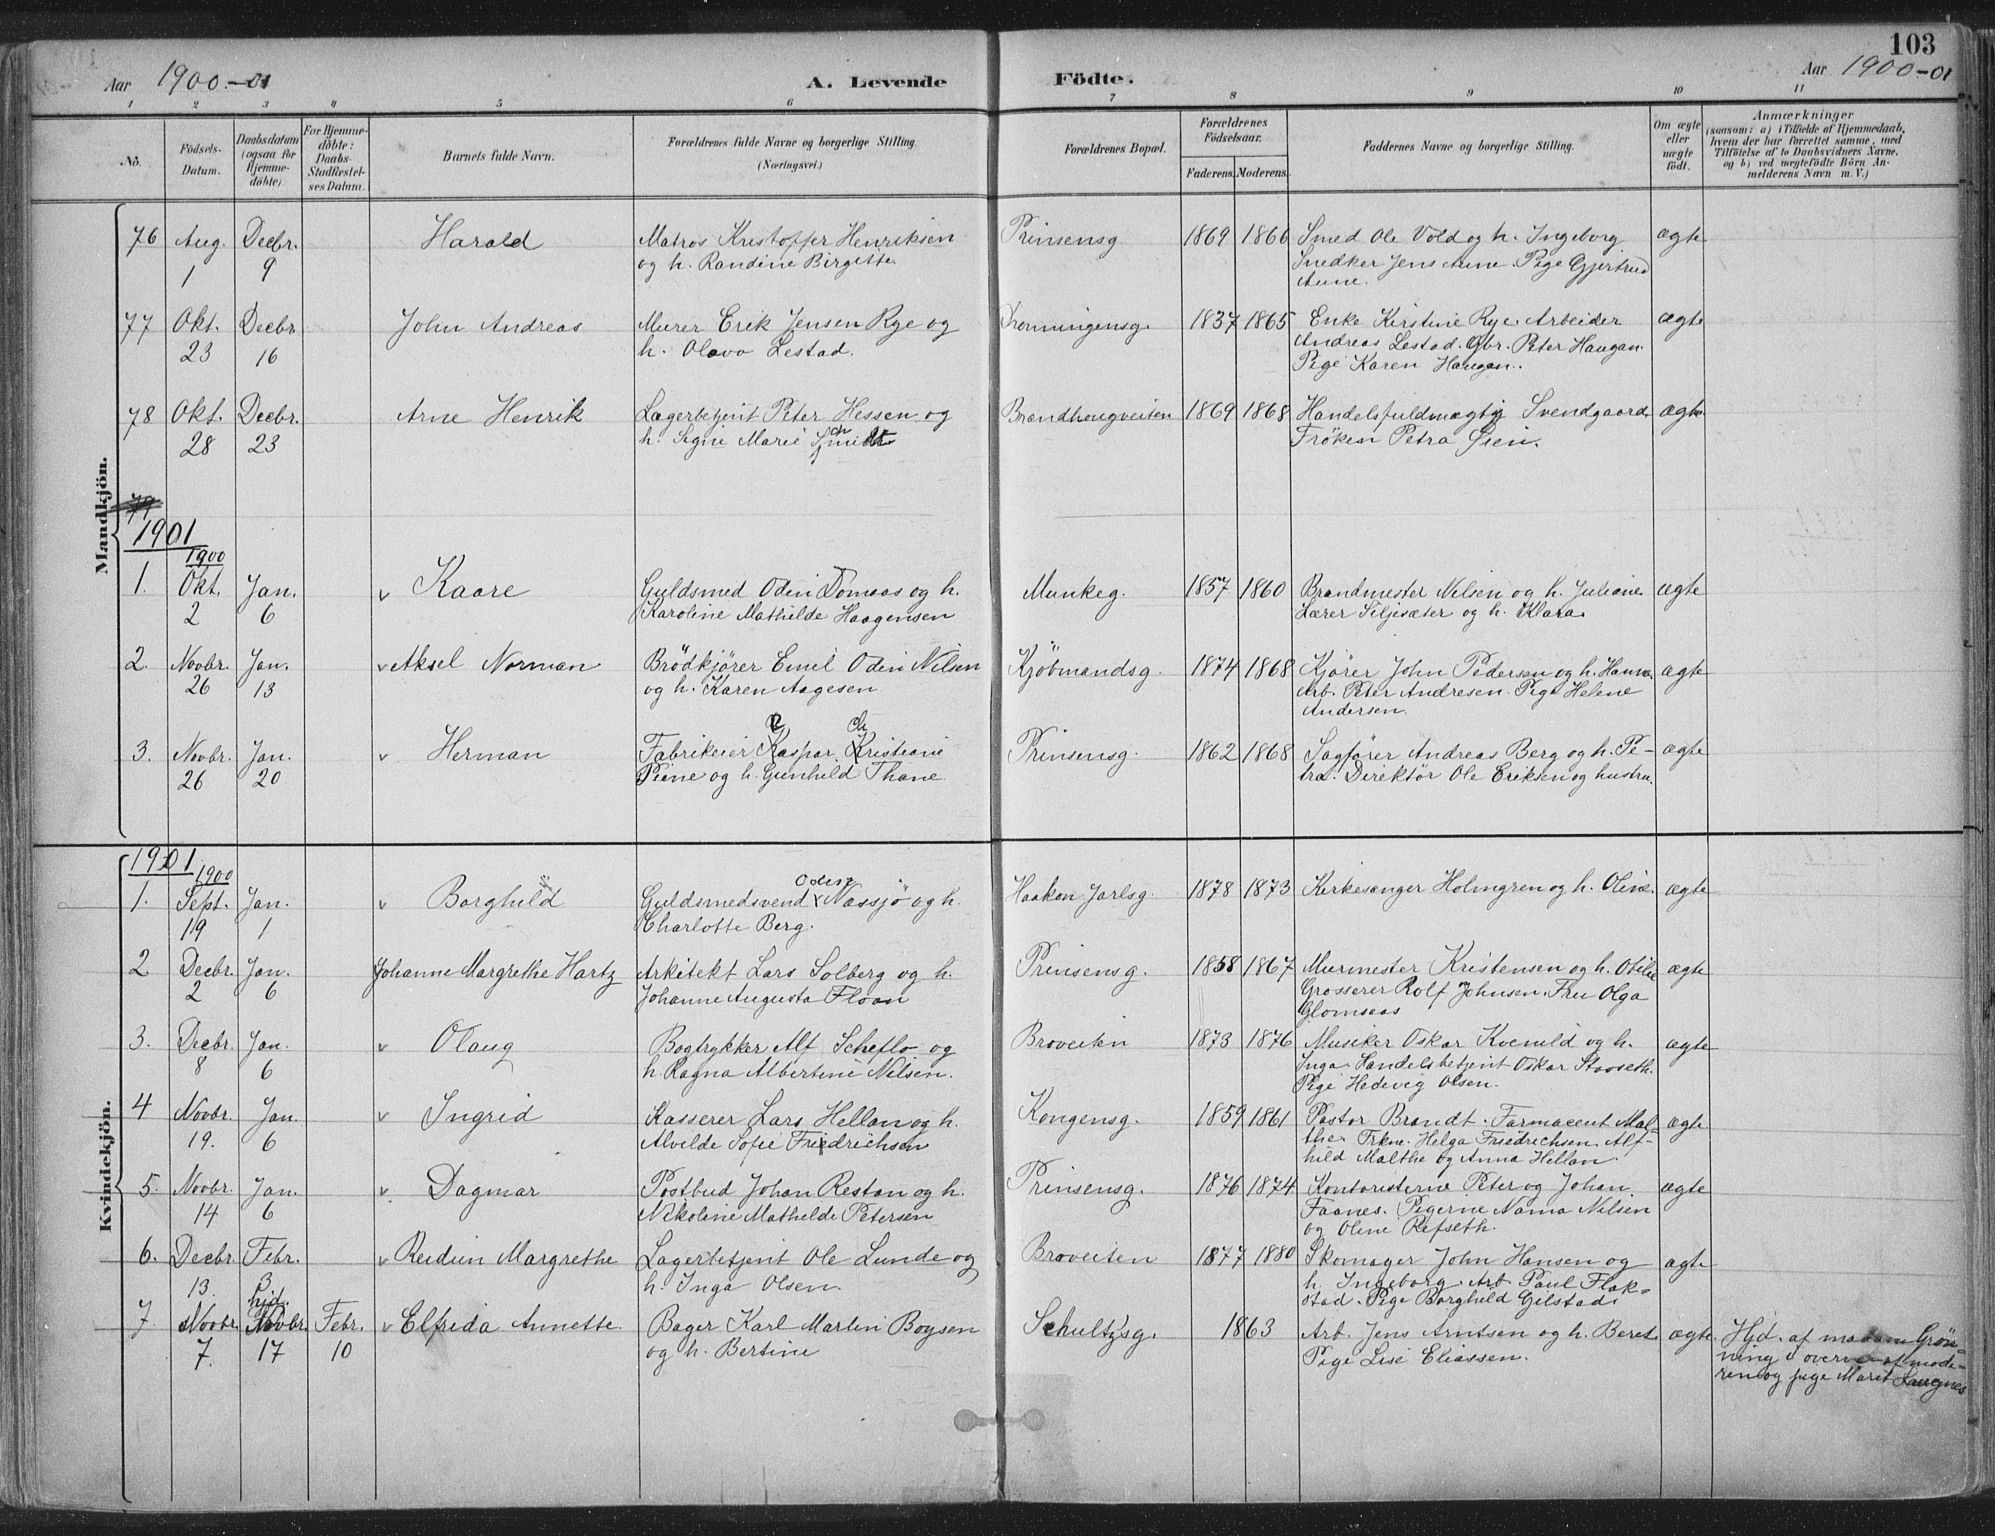 103
Aar 1900.-01 A. Levende Födte. Aar 1900-01
1 2 3 4 5 6 7 8 9 10 11
No.
Födsels-Datum.
Daabsdatum (ogsaa for Hjemme-döbte)
For Hjemme-döbte: Daabs-Stadfæstelses Datum.
Barnets fulde Navn.
Forældrenes fulde Navne og borgerlige Stilling. (Næringsvei.)
Forældrenes Bopæl.
Forældrenes Födselsaar.
Faderens. Moderens.
Faddernes Navne og borgerlige Stilling.
Om ægte eller uægte födt.
Anmærkninger
(saasom: a) i Tilfælde af Hjemmedaab, hvem der har forrettet samme, med Tilföielse af to Daabsvidners Navne, og b) ved uægtefödte Börn Anmelderens Navn m. V.)
Mandkjön.
76 Aug. 1 Decbr. 9 Harald
Matros Kristoffer Henriksen
og h. Randine Birgitte
Prinsensg. 1869 1866
Smed Ole Vold og h. Ingeborg
Snedker Jens Aune. Pige Gjertrud
Aune.
ægte
77 Okt. 23 Decbr 16 John Andreas
Murer Erik Jensen Rye og
h. Olava Lestad.
Dronningensg. 1837 1865
Enke Kirstine Rye. Arbeider
Andreas Lestad. Gbr. Peter Haugan.
Pige Karen Haugan.
ægte
78 Okt. 28 Decbr. 23 Arne Henrik
Lagerbetjent Peter Hessen og
h. Signe Marie Schmidt
Brandhougveiten 1869 1868
Handelsfuldmægtig Svendgaard
Fröken Petra Øien.
ægte
79
1901
1. 1900 Okt. 2 Jan. 6 v Kaare
Guldsmed Odin Domaas og h.
Karoline Mathilde Haagensen
Munkeg. 1857 1860
Brandmester Nilsen og h. Juliane
Lærer Siljesæter og h. Klara
ægte
2. Novbr. 26 Jan. 13 v Aksel Norman
Brödkjörer Emil Odin Nilsen
og h. Karen Aagesen
Kjöbmandsg. 1874 1868
Kjörer John Pedersen og h. Hanna,
Arb. Peter Andresen. Pige Helene
Andersen.
ægte
3. Novbr. 26 Jan. 20 v Herman
Fabrikeier Kaspar Kristiane
Piene og h. Gunhild Thane
Prinsensg. 1862 1868
Sagförer Andreas Berg og h. Pe-
tra. Direktör Ole Eriksen og hustru.
ægte
Kvindekjön.
1901
1. 1900 Sept. 19 Jan. 1 v Borghild
Guldsmedsvend Odin Næssjö og h.
Charlotte Berg.
Haakon Jarlsg. 1878 1873
Kirkesanger Holmgren og h. Oline.
ægte
2 Decbr. 2 Jan. 6 Johanne Margrethe Hartz
Arkitekt Lars Solberg og h.
Johanne Augusta Floan
Prinsensg. 1858 1867
Murmester Kristensen og h. Otilie
Grosserer Rolf Johnsen. Fru Olga
Glomsaas
ægte
3. Decbr. 8 Jan. 6 v Olaug
Bogtrykker Alf Scheflo og
h. Ragna Albertine Nilsen.
Broveiten 1873 1876
Musiker Oskar Kvenild og h.
Inga. Handelsbetjent Oskar Stavseth.
Pige Hedevig Olsen.
ægte
4 Novbr. 19. Jan. 6 v Ingrid
Kasserer Lars Hellan og h.
Alvilde Sofie Friedrichsen
Kongensg. 1859 1861
Pastor Brandt. Farmaceut Mal-
the. Frkne. Helga Friedrichsen. Alf-
hild Malthe og Anna Hellan.
ægte
5. Novbr. 14 Jan. 6 v Dagmar
Postbud Johan Restan og h.
Nikoline Mathilde Petersen
Prinsensg. 1876 1874
Kontoristerne Peter og Johan
Faanes. Pigerne Nanna Nilsen
og Oline Refseth.
ægte
6. Decbr. 13. Febr. 3 v Reidun Margrethe
Lagerbetjent Ole Lunde og
h. Inga Olsen.
Broveiten 1877 1880
Skomager John Hansen og
h. Ingeborg. Arb. Paul Flak-
stad. Pige Borghild Gilstad.
ægte
7. Novbr. 7. hjd. Novbr. 17 Febr. 10 v Elfrida Annette.
Bager Karl Martin Boysen
og h. Bertine
Schultzsg. 1863
Arb. Jens Arntsen og h. Beret.
Pige Lise Eliassen.
ægte.
Hjd. af madam Grön-
ning i overv. af mode-
ren og pige Marit